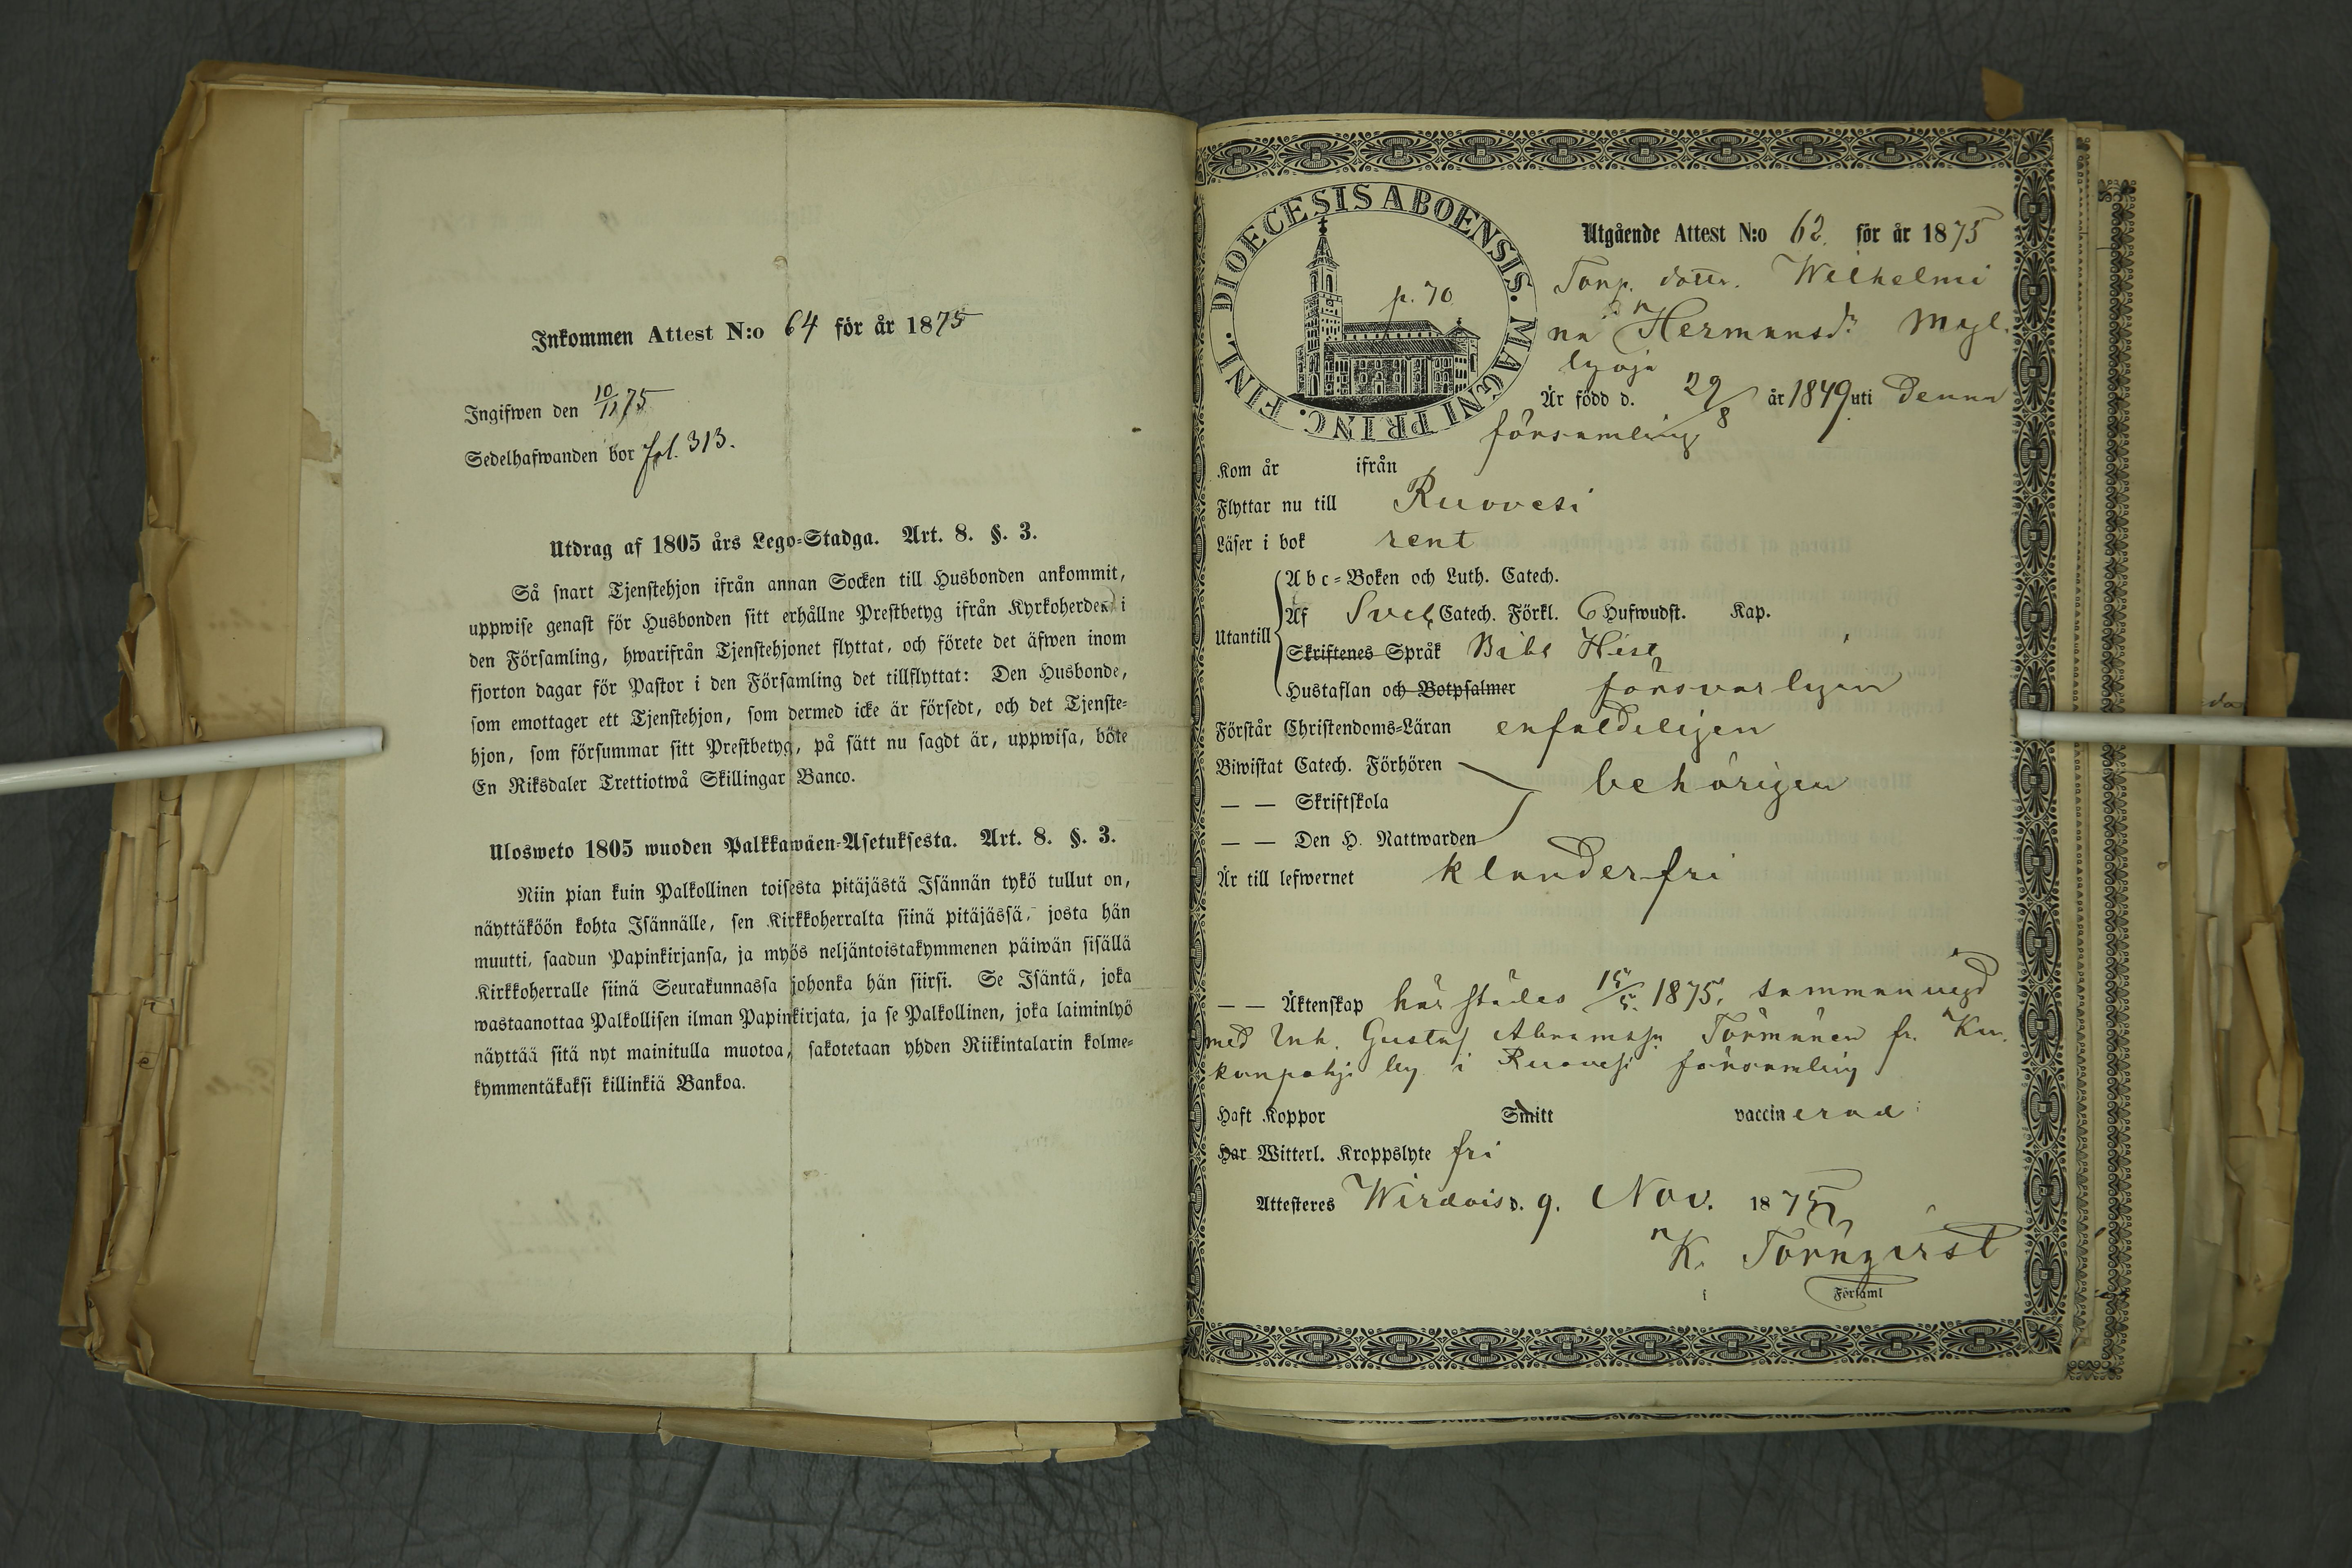 Inkommen Attest N:o 64 för år 1875
Ingifwen den 10/11 75
Sedelhafwanden bor fol. 313.
Utdrag af 1805 års Lego-Stadga. Art. 8. §. 3.
Så snart Tjenstehjon ifrån annan Socken till Husbonden ankommit,
uppwise genast för Husbonden sitt erhållne Prestbetyg ifrån Kyrkoherden i
den Församling, hwarifrån Tjenstehjonet flyttat, och förete det äfwen inom
fjorton dagar för Pastor i den Församling det tillflyttat: Den Husbonde,
som emottager ett Tjenstehjon, som dermed icke är försedt, och det Tjenste-
hjon, som försummar sitt Prestbetyg, på sätt nu sagdt är, uppwisa, böte
En Riksdaler Trettiotwå Skillingar Banco.
Ulosweto 1805 wuoden Palkkawäen-Asetuksesta. Art. 8. §. 3.
Niin pian kuin Palkollinen toisesta pitäjästä Isännän tykö tullut on,
näyttäköön kohta Isännälle, sen Kirkkoherralta siinä pitäjässä, josta hän
muutti, saadun Papinkirjansa, ja myös neljäntoistakymmenen päiwän sisällä
Kirkkoherralle siinä Seurakunnassa johonka hän siirsi. Se Isäntä, joka
wastaanottaa Palkollisen ilman Papinkirjata, ja se Palkollinen, joka laiminlyö
näyttää sitä nyt mainitulla muotoa, sakotetaan yhden Riikintalarin kolme-
kymmentäkaksi killinkiä Bankoa.
DIOECESIS ABOENSIS. MAGNI PRINC. FINL.
p. 70
Utgående Attest N:o 62. för år 1875
Torp. dottr. Wilhelmi
na Hermansdr Myl.
lyoja
Är född d. 29/8 år 1849 uti denna
församling
Kom år ifrån
Flyttar nu till Ruovesi
Läser i bok rent
Utantill
Abc-Boken och Luth. Catech.
Af Sveb Catech. Förkl. 6 Hufwudst. Kap.
Skriftenes Språk Bibl Hist
Hustaflan och Botpsalmer försvarligen
Förstår Christendoms-Läran enfaldeligen
Biwistat Catech. Förhören
— — Skriftskola behörigen
— — Den H. Nattwarden
Är till lefwernet klanderfri
— — Äktenskap härstädes 15/5 1875, sammanvigd
med Inh. Gustaf Abramsson Törmänen fr. Ku.
konpohja by i Ruovesi församling
Haft Koppor Smitt vaccinerad
Har Witterl. Kroppslyte fri
Attesteres Wirdois d. 9. Nov. 1875
K. Törnqvist
i Församl